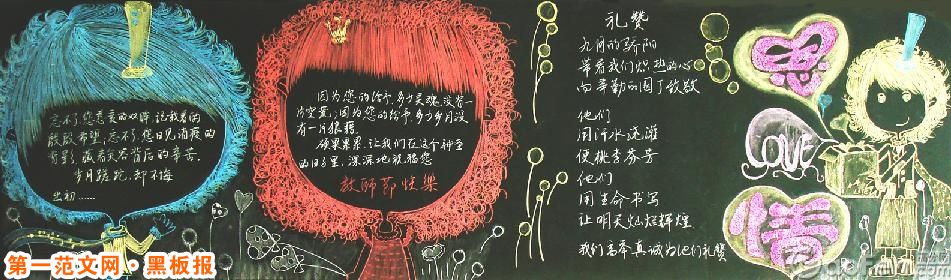 忘不了您慈爱的双眸,记载着的
殷殷希望,忘不了,您日见消瘦的
背影,藏着笑容背后的辛苦.
岁月蹉跎,却不悔
当初……
因为您的给予,多少灵魂没有一
片空虚,因为您的给予多少岁月没
有一片狼藉.
硕果累累,让我们在这个神圣
的日子里,深深地祝福您
教师节快樂
礼赞
九月的骄阳
带着我们炽热的心
向辛勤的园丁致敬
他们
用汗水浇灌
使桃李芬芳
他们
用生命书写
让明天灿烂辉煌
我们高举真诚为他们礼赞
恩
LOVE
情
第一范文网·黑板报